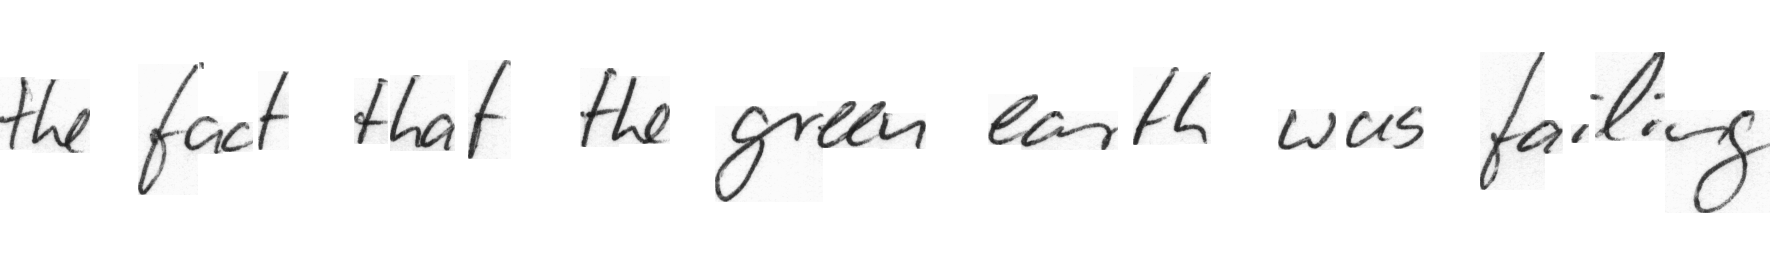 the fact that the green earth was failing